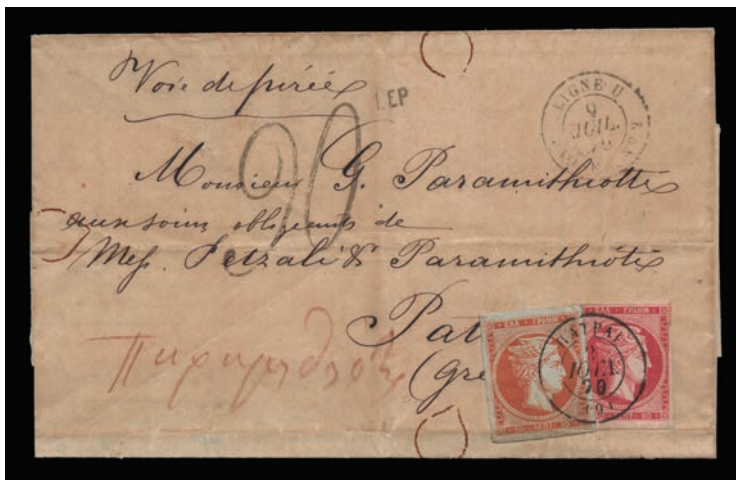 Voie de pirée
90 LEP
LIGNE U
9
JUIL.
Monsieur G. Paramithiotti
aux soins obligeants de
Mess. Petzali & Paramithioti
Pat
(Gre
ΕΛΛ · ΓΡΑΜΜ
ΕΛΛ · ΓΡΑΜΜ
ΠΑΤΡΑΙ
2
ΙΟΥΛ.
70